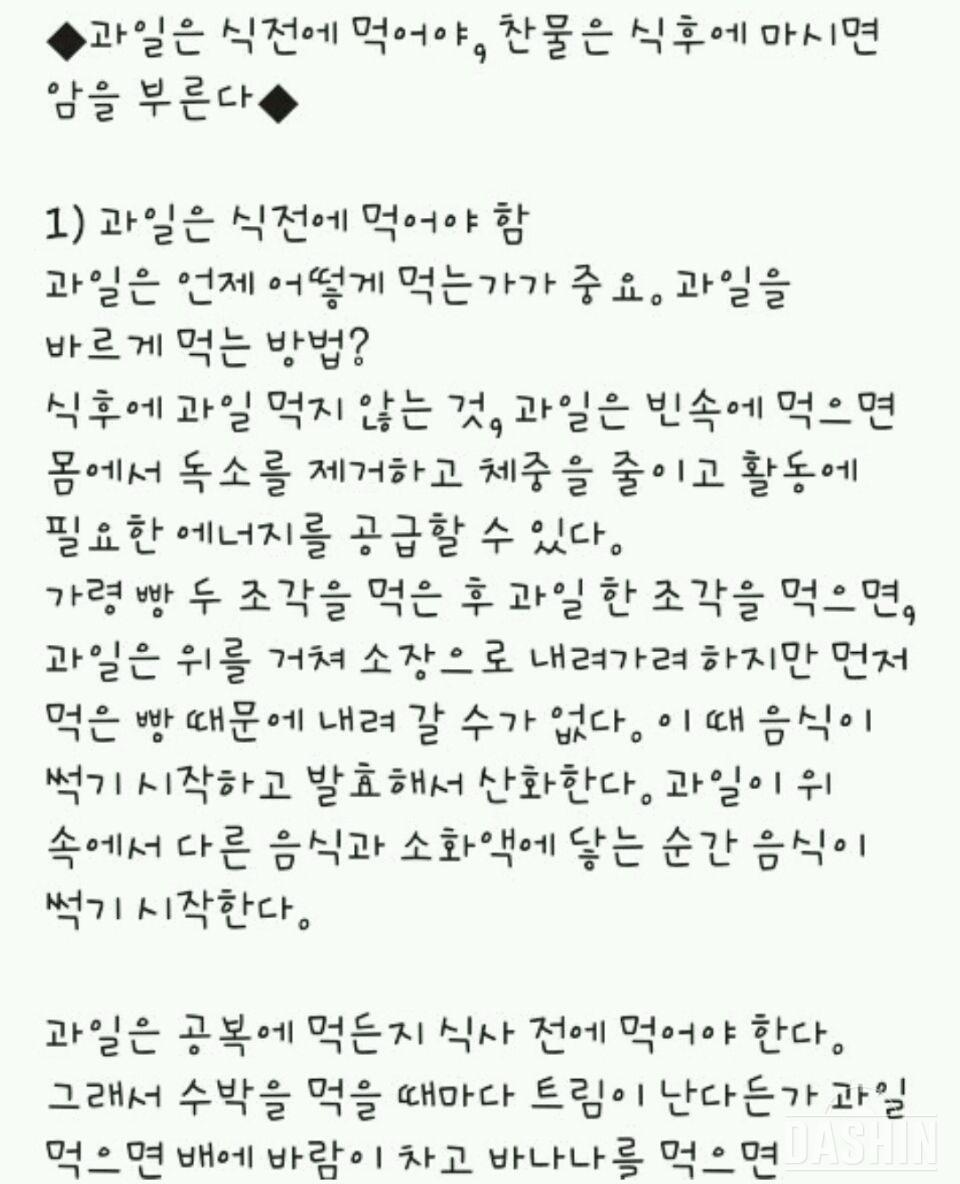 ◆과일은 식전에 먹어야, 찬물은 식후에 마시면
암을 부른다◆
1) 과일은 식전에 먹어야 함
과일은 언제 어떻게 먹는가가 중요. 과일을
바르게 먹는 방법?
식후에 과일 먹지 않는 것, 과일은 빈속에 먹으면
몸에서 독소를 제거하고 체중을 줄이고 활동에
필요한 에너지를 공급할 수 있다.
가령 빵 두 조각을 먹은 후 과일 한 조각을 먹으면,
과일은 위를 거쳐 소장으로 내려가려 하지만 먼저
먹은 빵 때문에 내려 갈 수가 없다. 이 때 음식이
썩기 시작하고 발효해서 산화한다. 과일이 위
속에서 다른 음식과 소화액에 닿는 순간 음식이
썩기 시작한다.
과일은 공복에 먹든지 식사 전에 먹어야 한다.
그래서 수박을 먹을 때마다 트림이 난다든가 과일
먹으면 배에 바람이 차고 바나나를 먹으면
DASHIN